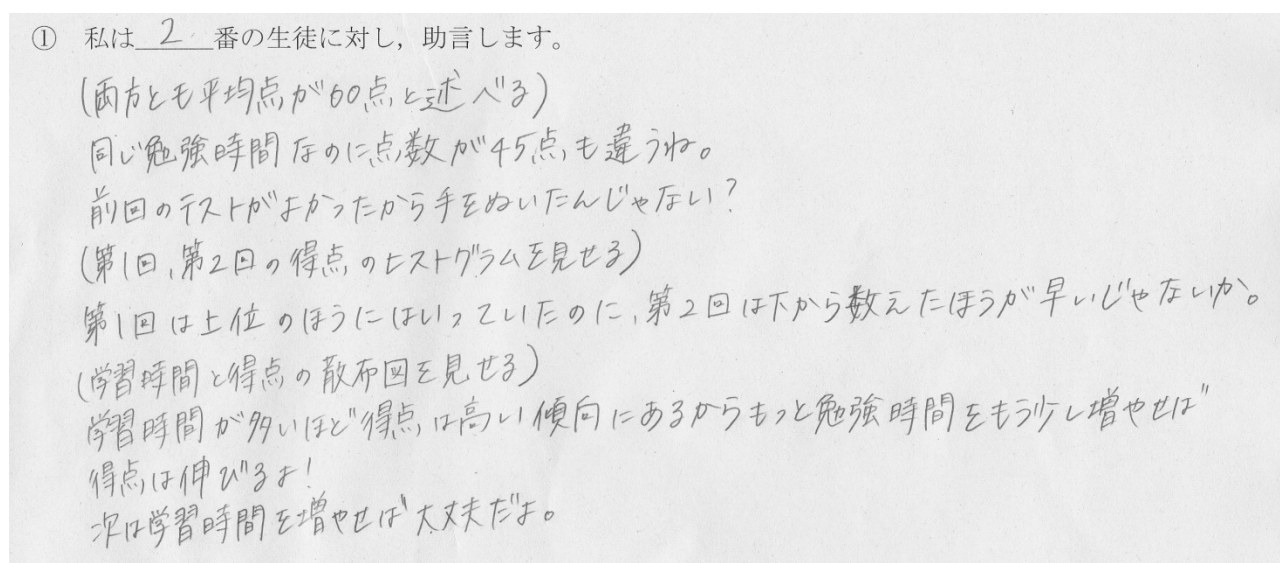 ① 私は 2 番の生徒に対し，助言します。
(両方とも平均点が60点と述べる)
同じ勉強時間なのに点数が45点も違うね。
前回のテストがよかったから手をぬいたんじゃない？
(第1回、第2回の得点のヒストグラムを見せる)
第1回は上位のほうにはいっていたのに、第2回は下から数えたほうが早いじゃないか。
(学習時間と得点の散布図を見せる)
学習時間が多いほど得点は高い傾向にあるからもっと勉強時間をもう少し増やせば
得点は伸びるよ！
次は学習時間を増やせば大丈夫だよ。